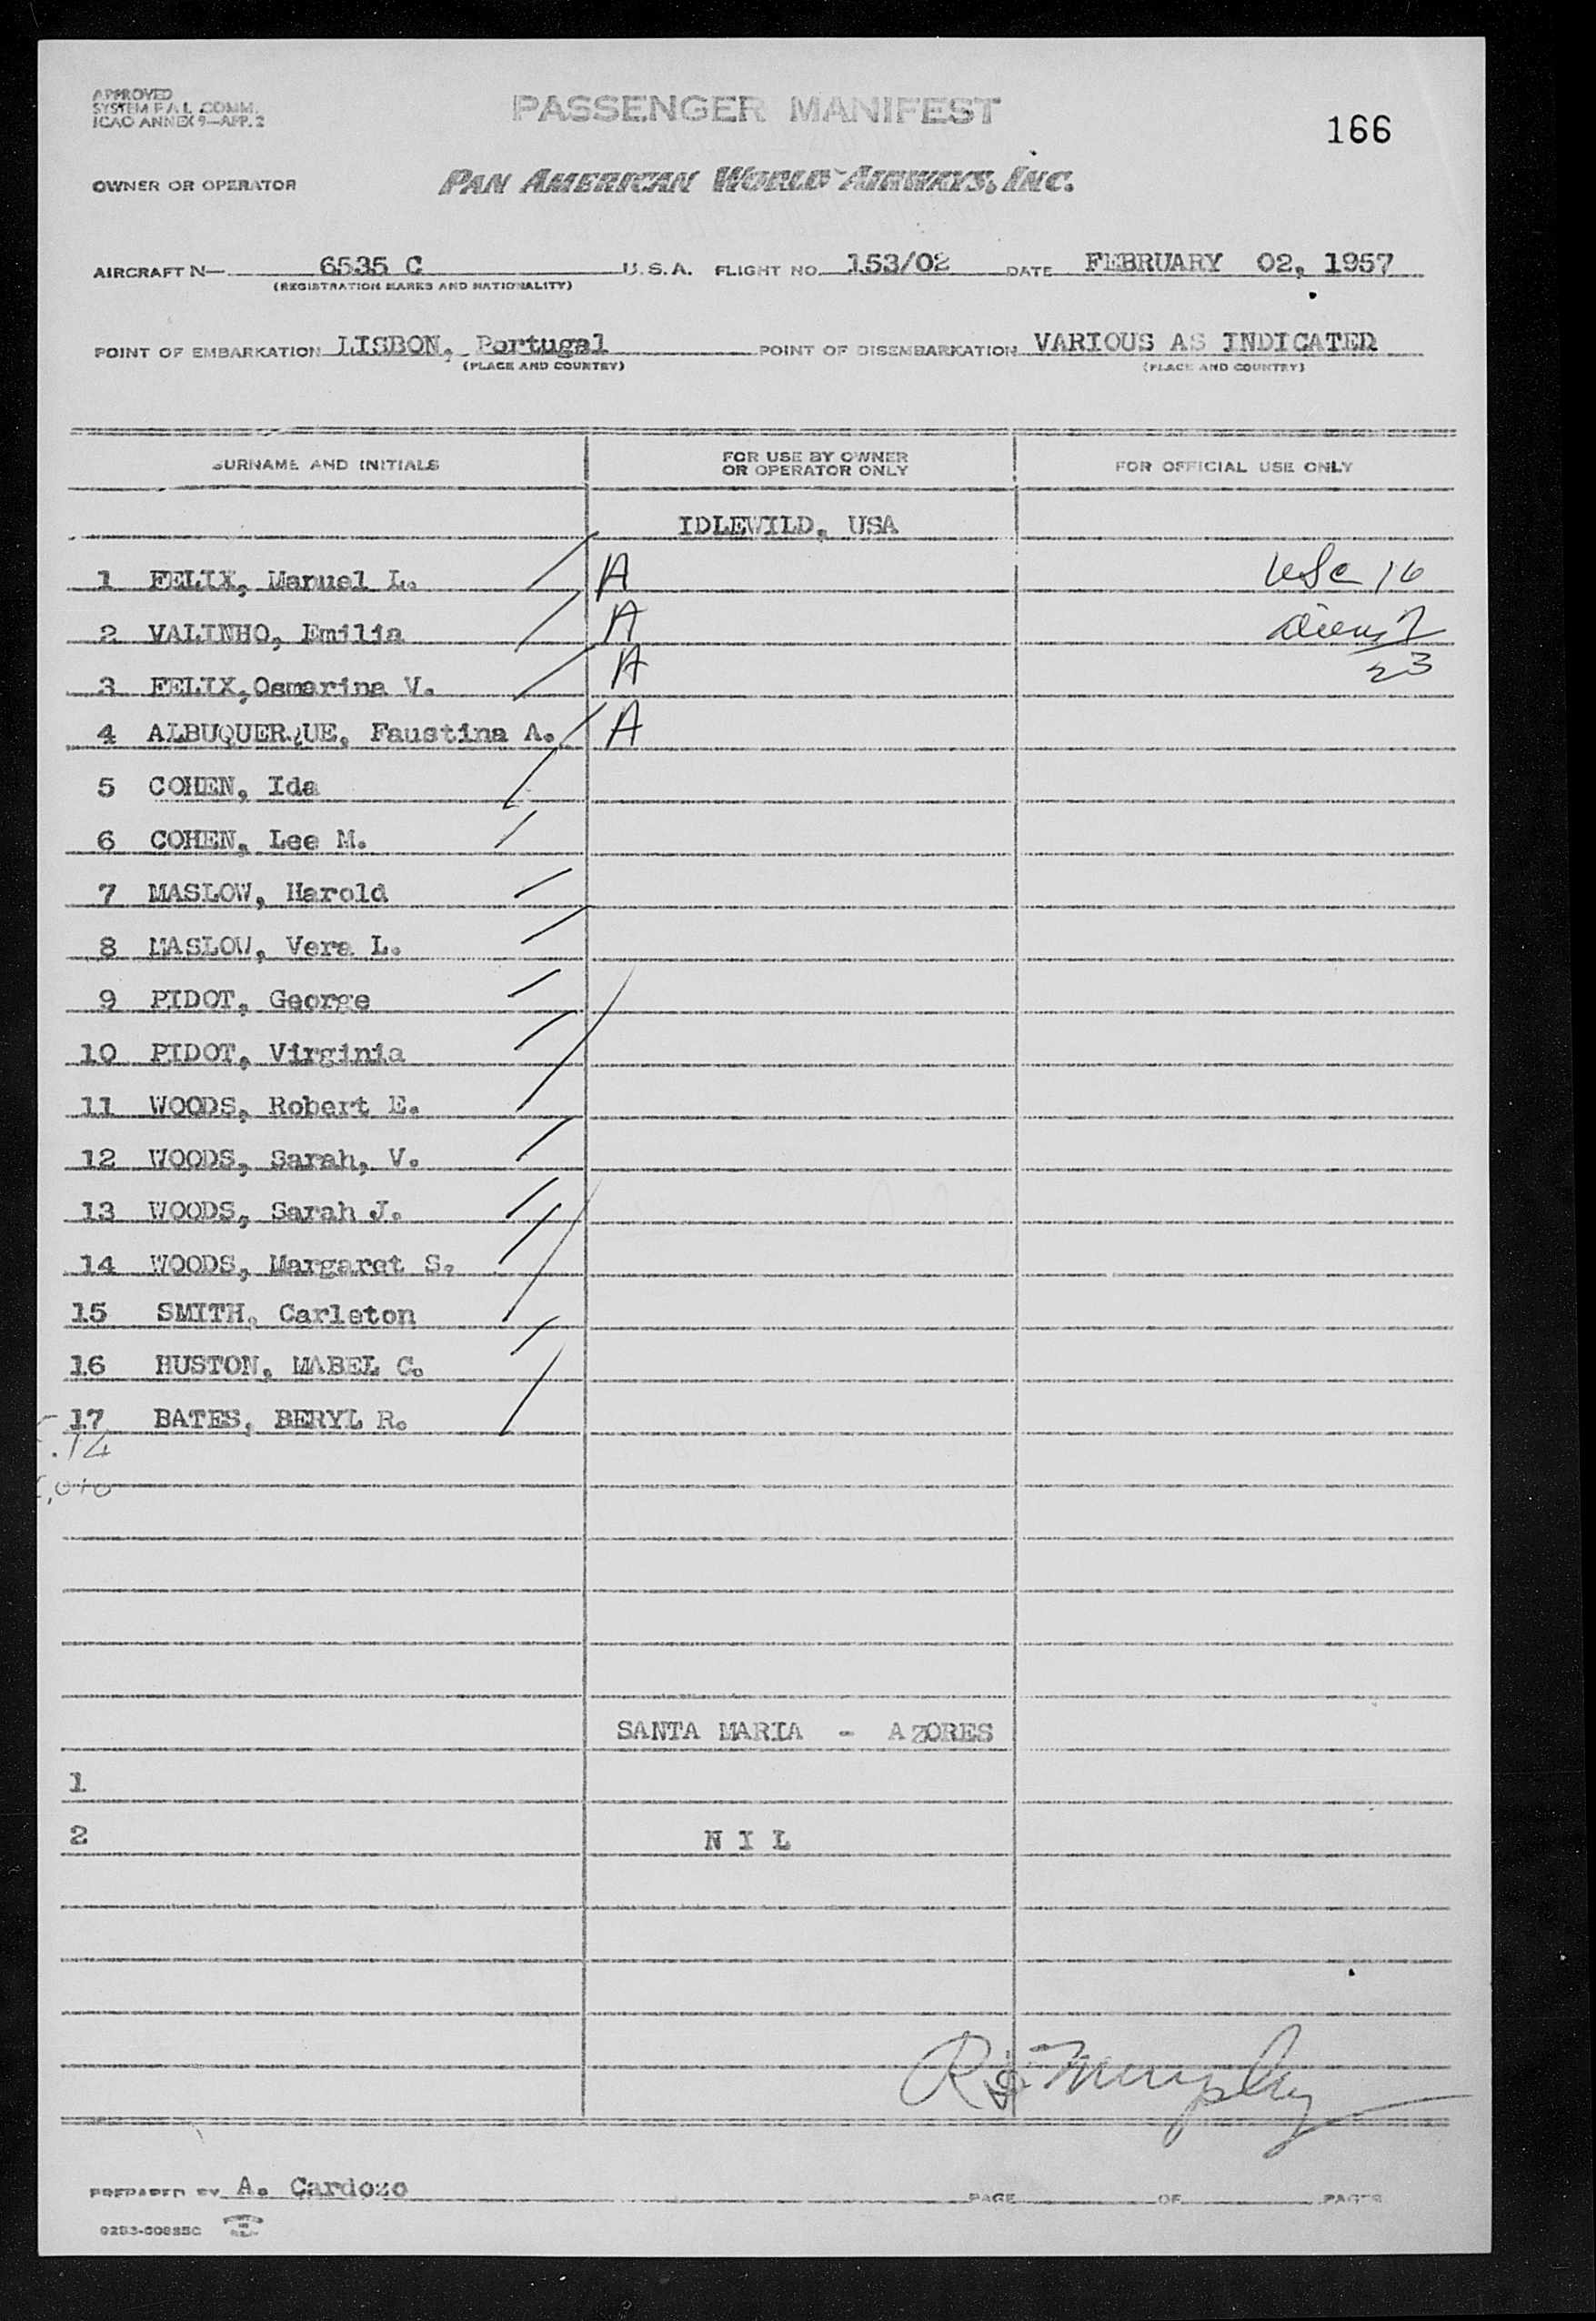 APPROVED
SYSTEM F A L COMM.
ICAO ANNEX 9—APP. 2
PASSENGER MANIFEST
166
OWNER OR OPERATOR PAN AMERICAN WORLD AIRWAYS, INC.
AIRCRAFT N— 6535 C U.S.A. FLIGHT NO. 153/02 DATE FEBRUARY 02, 1957
(REGISTRATION MARKS AND NATIONALITY)
POINT OF EMBARKATION LISBON, Portugal POINT OF DISEMBARKATION VARIOUS AS INDICATED
(PLACE AND COUNTRY) (PLACE AND COUNTRY)
SURNAME AND INITIALS FOR USE BY OWNER OR OPERATOR ONLY FOR OFFICIAL USE ONLY
IDLEWILD, USA
1 FELIX, Manuel L. A USC 16
2 VALINHO, Emilia A Aliens 7
3 FELIX,Osmarina V. A 23
4 ALBUQUERQUE, Faustina A. A
5 COHEN, Ida
6 COHEN, Lee M.
7 MASLOW, Harold
8 MASLOW, Vera L.
9 PIDOT, George
10 PIDOT, Virginia
11 WOODS, Robert E.
12 WOODS, Sarah, V.
13 WOODS, Sarah J.
14 WOODS, Margaret S.
15 SMITH, Carleton
16 HUSTON, MABEL C.
17 BATES, BERYL R.
SANTA MARIA - AZORES
1
2 N I L
Murphy
PREPARED BY A. Cardozo PAGE OF PAGES